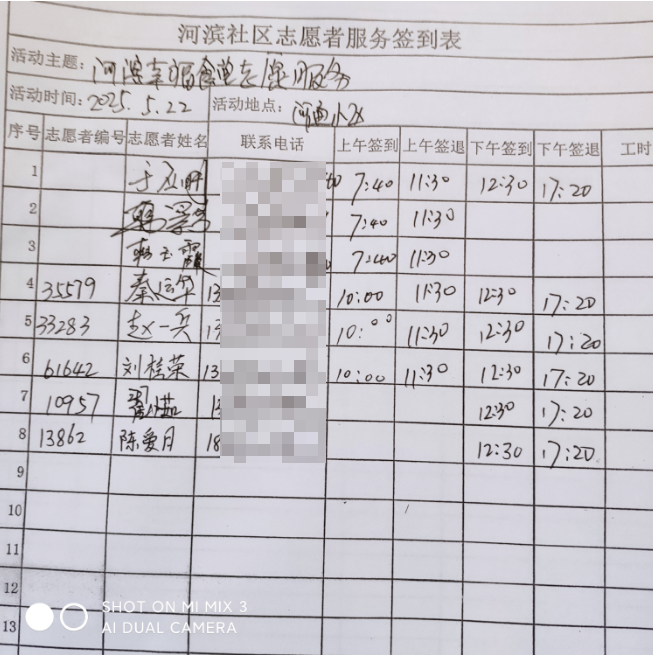 河滨社区志愿者服务签到表
活动主题: 河滨幸福食堂志愿服务
活动时间: 2025.5.22 活动地点: 河西小区
序号 志愿者编号 志愿者姓名 联系电话 上午签到 上午签退 下午签到 下午签退 工时
1 7:40 11:30 12:30 17:20
2 7:40 11:30
3 7:40 11:30
4 35579 13 10:00 11:30 12:30 17:20
5 33283 赵一兵 13 10:00 11:30 12:30 17:20
6 61642 刘桂荣 13 10:00 11:30 12:30 17:20
7 10957 12:30 17:20
8 13862 陈爱月 18 12:30 17:20
9
10
11
12
13
SHOT ON MI MIX 3
AI DUAL CAMERA